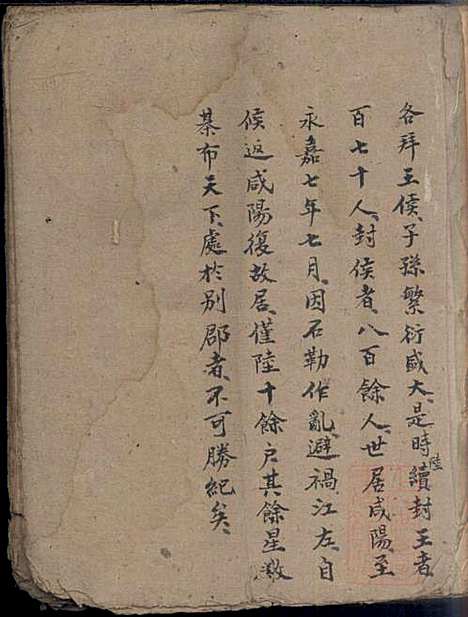 各拜王侯、子孫繁衍盛大、是時陸續封王者
百七十人、封侯者、八百餘人、世居咸陽、至
永嘉七年七月、因石勒作亂、避禍江左、自
候返咸陽復故居、僅陸十餘户其餘星散
棊布天下、處於別郡者、不可勝紀矣、